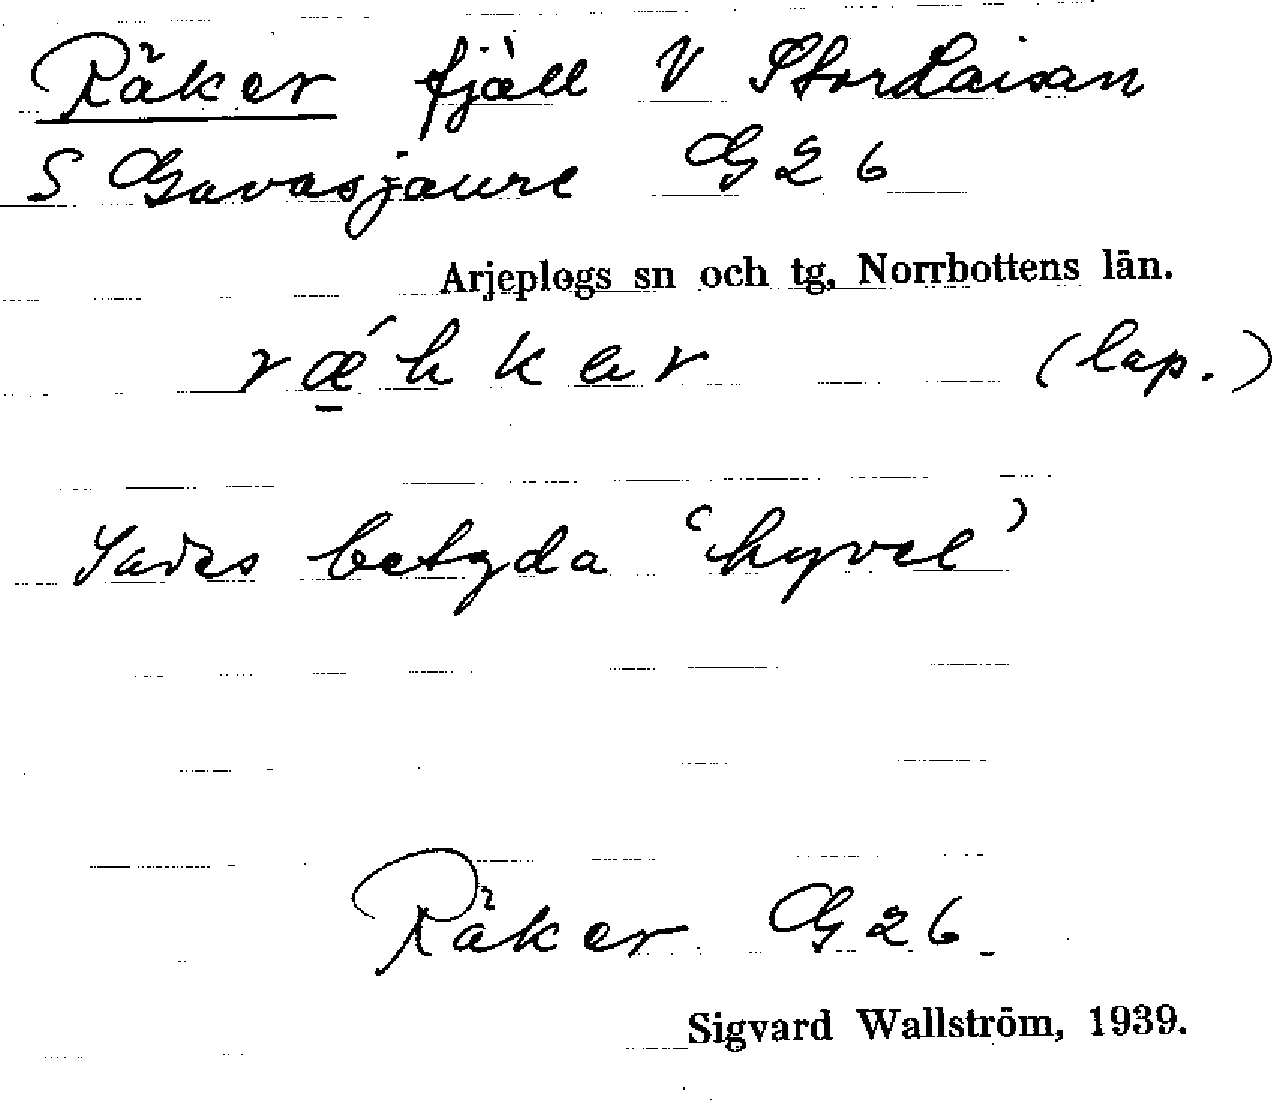 Räker fjäll V Storlaisan
S Gavasjaure G 26
Arjeplogs sn och tg, Norrbottens län.
rǽ̱hker (lap.)
Sades betyda 'hyvel'
Räker G 26
Sigvard Wallström, 1939.